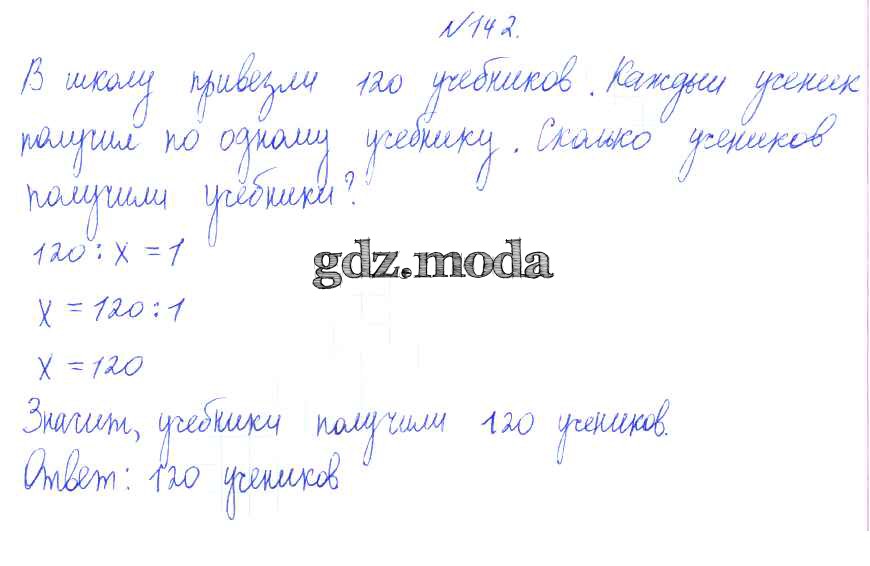 №142.
В школу привезли 120 учебников. Каждый ученик
получил по одному учебнику. Сколько учеников
получили учебники?
120 : x = 1
gdz.moda
x = 120 : 1
x = 120
Значит, учебники получили 120 учеников.
Ответ: 120 учеников